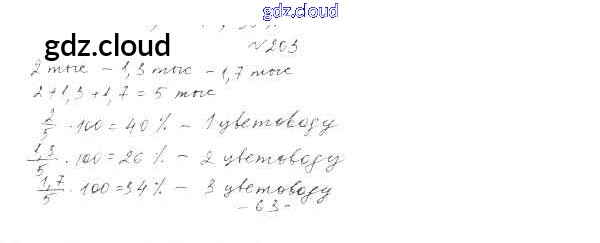 gdz.cloud
gdz.cloud
№203
2 тыс - 1,3 тыс - 1,7 тыс
2+1,3+1,7 = 5 тыс
2/5 · 100 = 40 % - 1 цветоводу
1,3/5 · 100 = 26 % - 2 цветоводу
1,7/5 · 100 = 34 % - 3 цветоводу
- 63 -